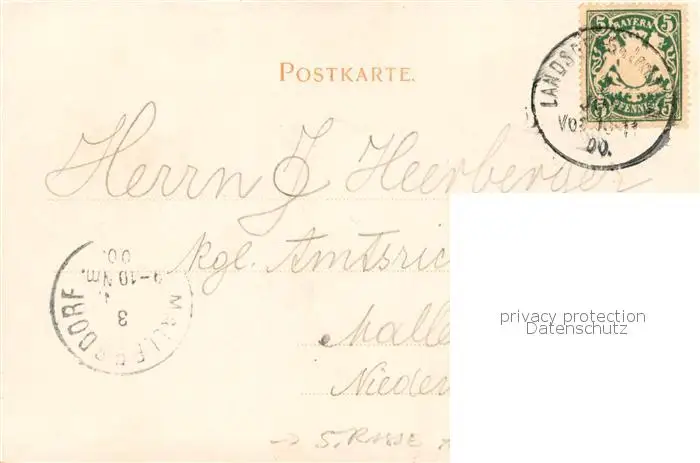 POSTKARTE.
5 BAYERN 5
5 PFENNIG 5
LANDS
VOR. 10-11
00.
Herrn J Heerberger
kgl. Amtsric
Malle
Nieder
MALLERSDORF
3
9-10 Nm.
00.
privacy protection
Datenschutz
→ STRASSE